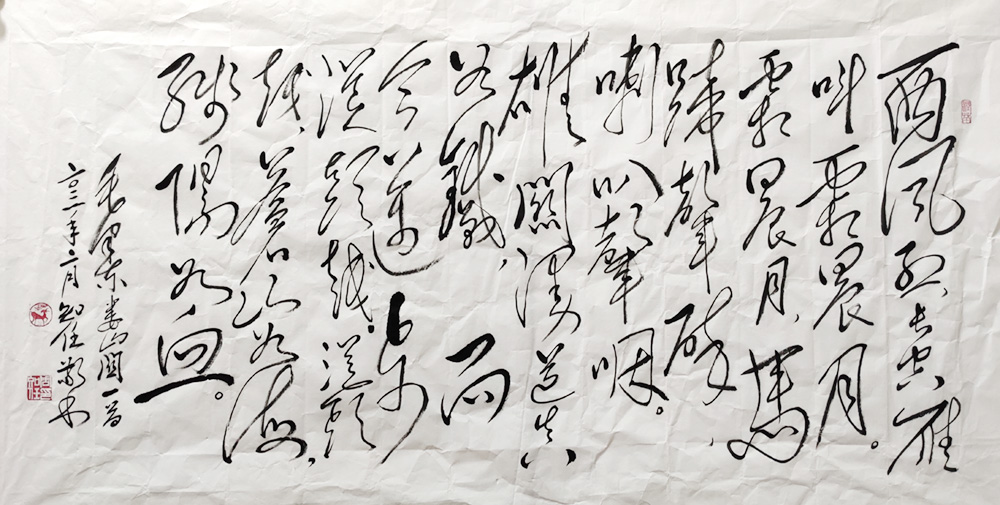 西风烈,长空雁
叫霜晨月。
霜晨月,馬
蹄聲碎,
喇叭聲咽。
雄關漫道真
如鐵,而
今邁步
從頭越。從頭
越,蒼山如海,
殘陽如血。
毛澤東婁山關一首
年 月 知任敬书